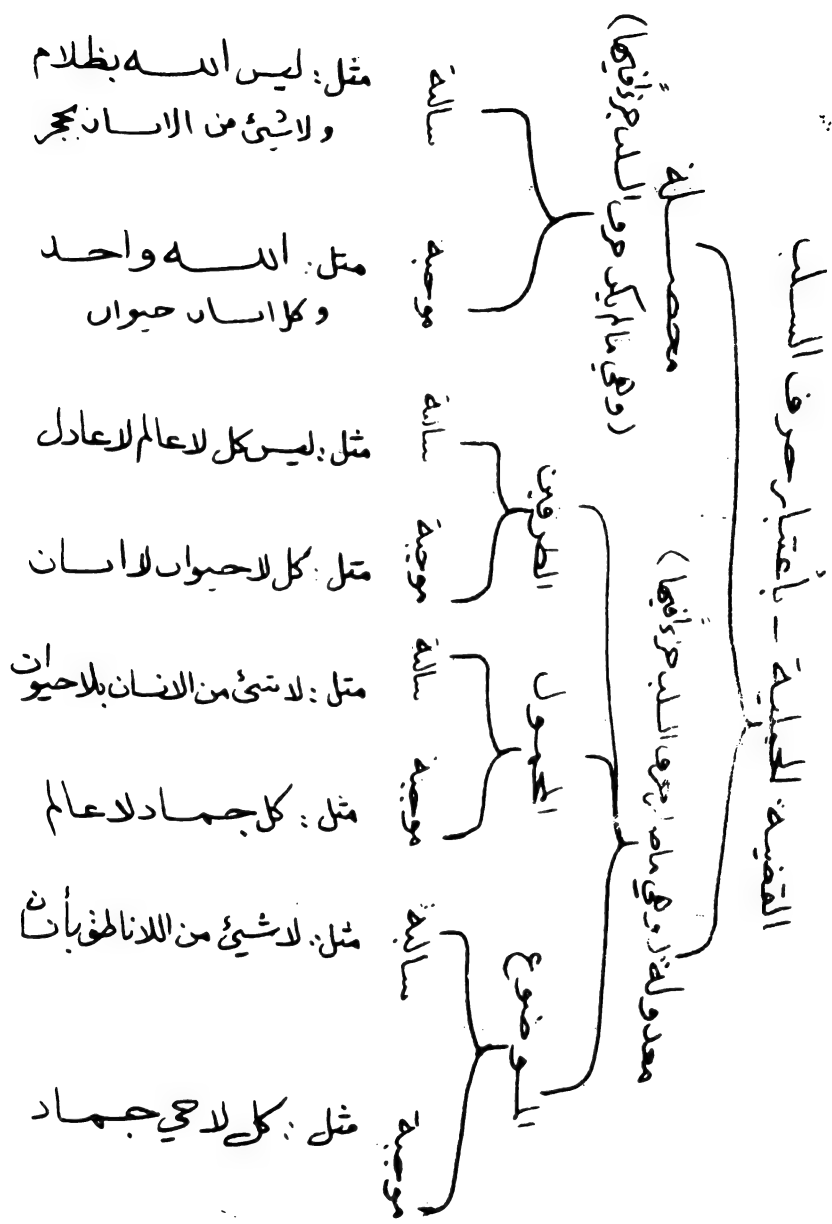 القضية الحملية - بأعتبار حرف السلب
محصلة
(وهي مالم يكن حرف السلب جزءاً فيها)
سالبة
مثل: ليس الله بظلام
ولاشيئ من الانسان بحجر
موجبة
مثل: الله واحد
وكل انسان حيوان
معدولة (وهي ماصار حرف السلب جزءاً فيها)
الطرفين
سالبة
مثل: ليس كل لاعالم لاعادل
موجبة
مثل: كل لاحيوان لاانسان
المحمول
سالبة
مثل: لاشئ من الانسان بلاحيوان
موجبة
مثل: كل جماد لاعالم
الموضوع
سالبة
مثل: لاشيئ من اللاناطق بأنسان
موجبة
مثل: كل لاحي جماد